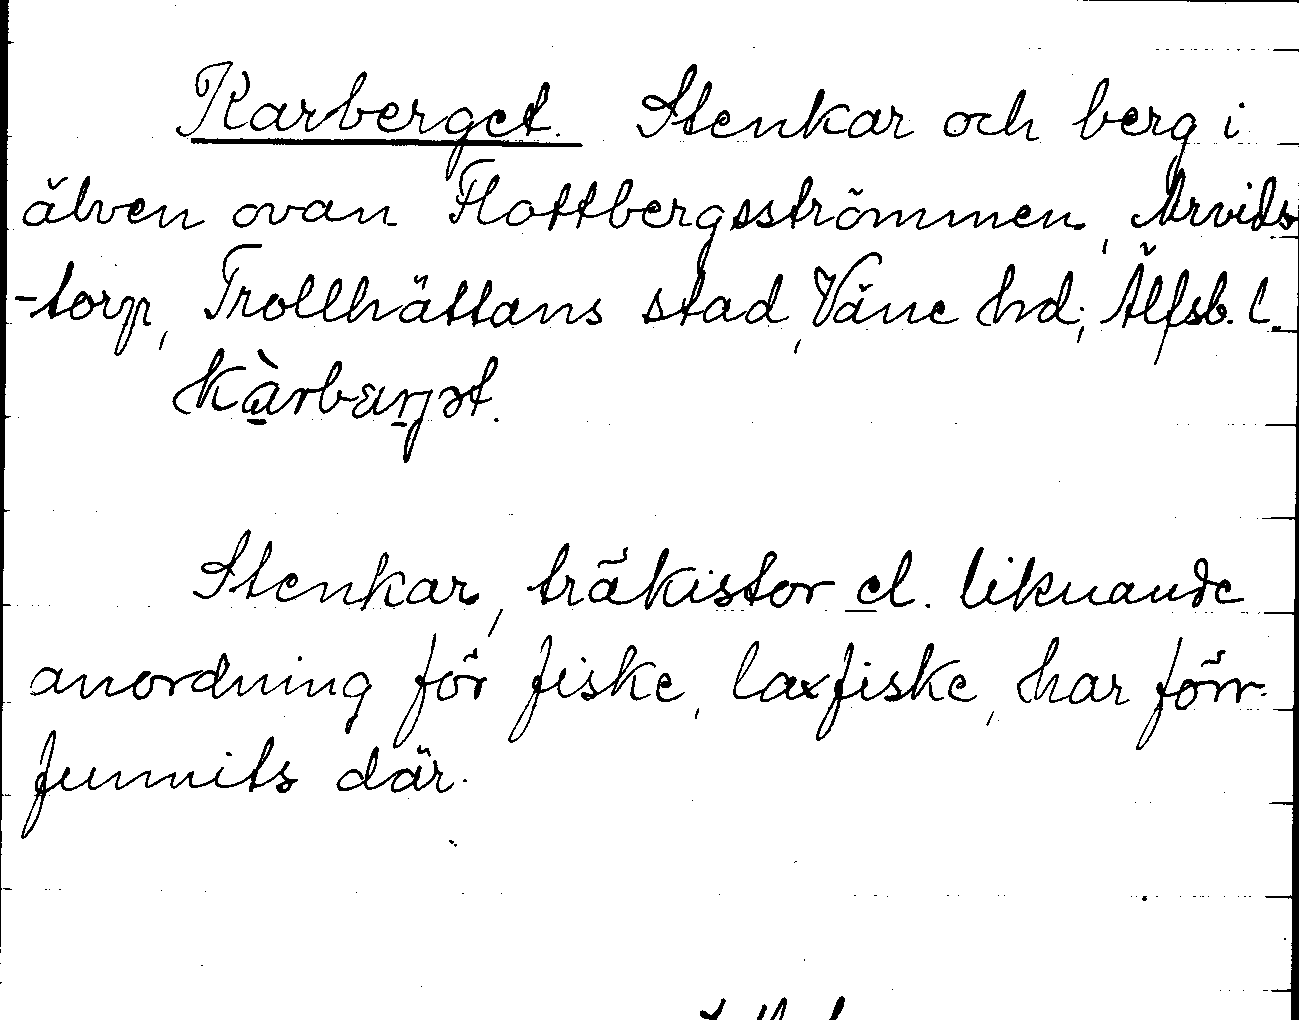 Karberget. Stenkar och berg i
älven ovan Flottbergsströmmen, Arvids
-torp, Trollhättans stad, Väne hd, Älfsb. l.
kàrbærjət.
Stenkar, träkistor el. liknande
anordning för fiske, laxfiske, har förr
funnits där.